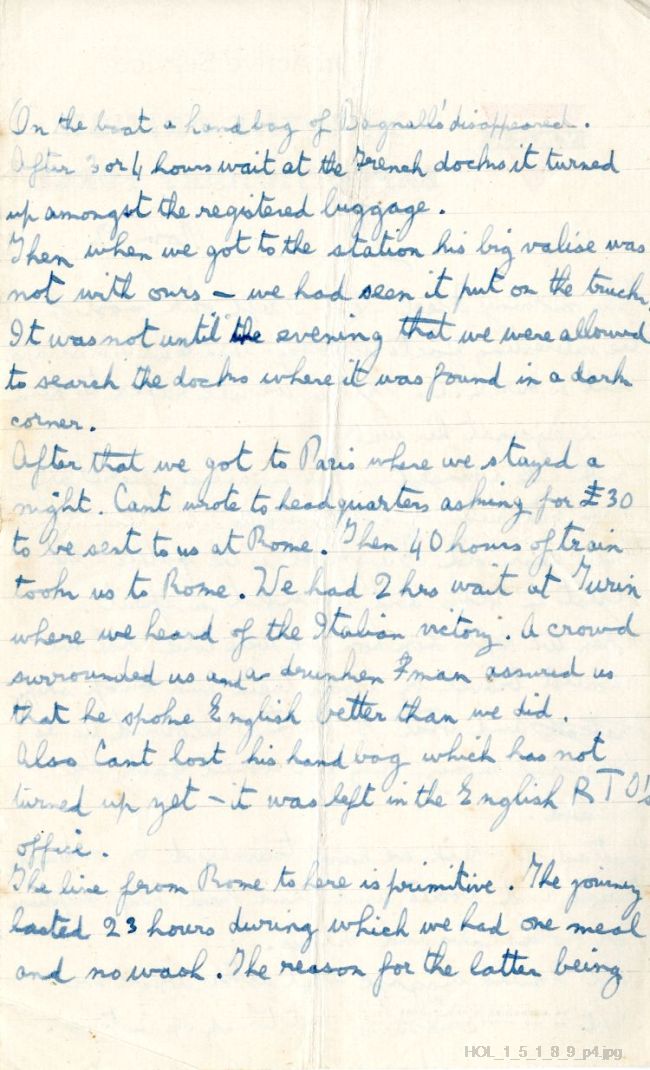 On the boat a hand bag of Bagnall's disappeared.
After 3 or 4 hours wait at the French docks it turned
up amongst the registered luggage.
Then when we got to the station his big valise was
not with ours – we had seen it put on the truck.
It was not until the evening that we were allowed
to search the docks where it was found in a dark
corner.
After that we got to Paris where we stayed a
night. Cant wrote to headquarters asking for £30
to be sent to us at Rome. Then 40 hours of train
took us to Rome. We had 2 hrs wait at Turin
where we heard of the Italian victory. A crowd
surrounded us and a drunken man assured us
that he spoke English better than we did.
Also Cant lost his hand bag which has not
turned up yet – it was left in the English RTO's
office.
The line from Rome to here is primitive. The journey
lasted 23 hours during which we had one meal
and no wash. The reason for the latter being
HOL_1_5_1_8_9_p4.jpg